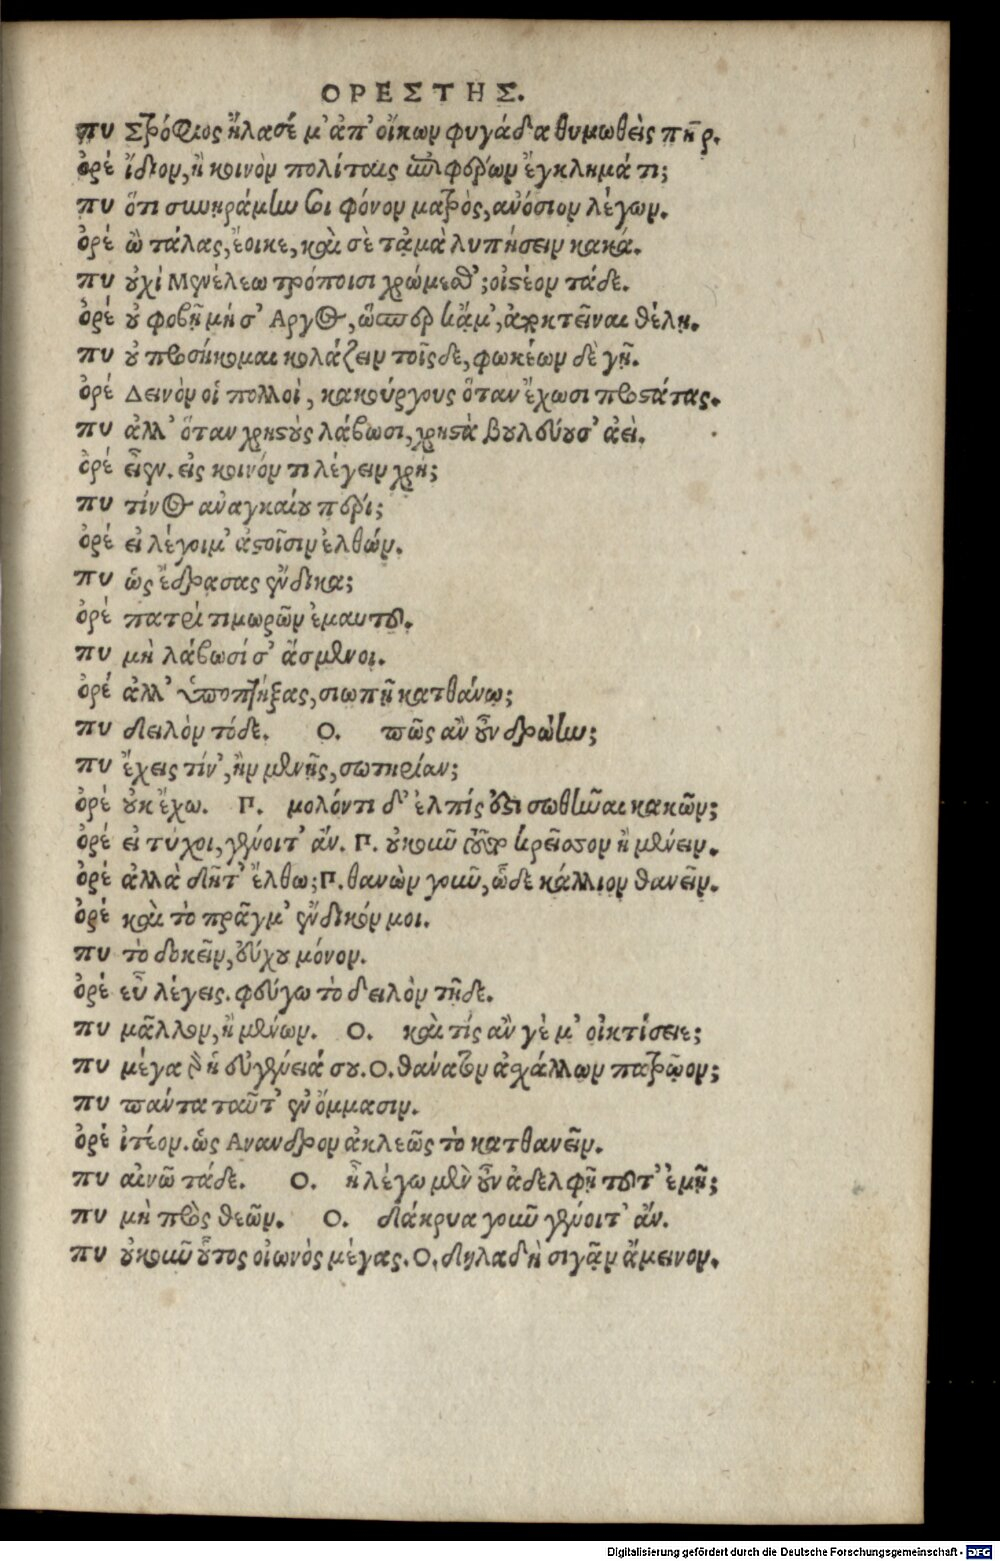 ΟΡΕΣΤΗΣ.
πυ Στρόφιος ἤλασέ μ' ἀπ' οἴκων φυγάδα θυμωθεὶς πηρ.
ὀρέ ἴδιον, ἢ κοινὸν πολίταις ἐπιφέρων ἔγκλημά τι;
πυ ὅτι συνηράμην σοι φόνον μητρὸς, ἀνόσιον λέγων.
ὀρέ ὢ τάλας, ἔοικε, καὶ σὲ τἀμὰ λυπήσειν κακά.
πυ οὐχὶ Μενέλεω τρόποισι χρώμεθ'; οἰστέον τάδε.
ὀρέ οὐ φοβῇ μή σ' Αργος, ὥσπερ κἄμ', ἀποκτεῖναι θέλῃ.
πυ οὐ προσήκομαι κολάζειν τοῖσδε, φωκέων δὲ γῇ.
ὀρέ Δεινὸν οἱ πολλοὶ, κακούργους ὅταν ἔχωσι προστάτας.
πυ ἀλλ' ὅταν χρηστοὺς λάβωσι, χρηστὰ βουλεύουσ' ἀεὶ.
ὀρέ εἶεν. εἰς κοινόν τι λέγειν χρή;
πυ τίνος ἀναγκαίου πέρι;
ὀρέ εἰ λέγοιμ' ἀστοῖσιν ἐλθών.
πυ ὡς ἔδρασας ἔνδικα;
ὀρέ πατρὶ τιμωρῶν ἐμαυτοῦ.
πυ μὴ λάβωσί σ' ἄσμενοι.
ὀρέ ἀλλ' ὑποπτήξας, σιωπῇ κατθάνω;
πυ δειλὸν τόδε. Ο. πῶς ἂν οὖν δρῴην;
πυ ἔχεις τίν', ἢν μένῃς, σωτηρίαν;
ὀρέ οὐκ ἔχω. Π. μολόντι δ' ἐλπίς ἐστι σωθῆναι κακῶν;
ὀρέ εἰ τύχοι, γένοιτ' ἄν. Π. οὐκοῦν τοῦτο κρεῖσσον ἢ μένειν.
ὀρέ ἀλλὰ δῆτ' ἔλθω; Π. θανὼν γοῦν, ὧδε κάλλιον θανεῖν.
ὀρέ καὶ τὸ πρᾶγμ' ἔνδικόν μοι.
πυ τὸ δοκεῖν, εὔχου μόνον.
ὀρέ εὖ λέγεις. φεύγω τὸ δειλὸν τῇδε.
πυ μᾶλλον, ἢ μένων. Ο. καὶ τίς ἂν γὲ μ' οἰκτίσειε;
πυ μέγα γὰρ ἡ εὐγένειά σου. Ο. θάνατον ἀχάλλων πατρῷον;
πυ πάντα ταῦτ' ἐν ὄμμασιν.
ὀρέ ἰτέον. ὡς Ανανδρον ἀκλεῶς τὸ κατθανεῖν.
πυ αἰνῶ τάδε. Ο. ἦ λέγω μὲν οὖν ἀδελφῇ τοῦτ' ἐμῇ;
πυ μὴ πρὸς θεῶν. Ο. δάκρυα γοῦν γένοιτ' ἄν.
πυ οὐκοῦν οὗτος οἰωνὸς μέγας. Ο. δηλαδὴ σιγᾷν ἄμεινον.
Digitalisierung gefördert durch die Deutsche Forschungsgemeinschaft - DFG